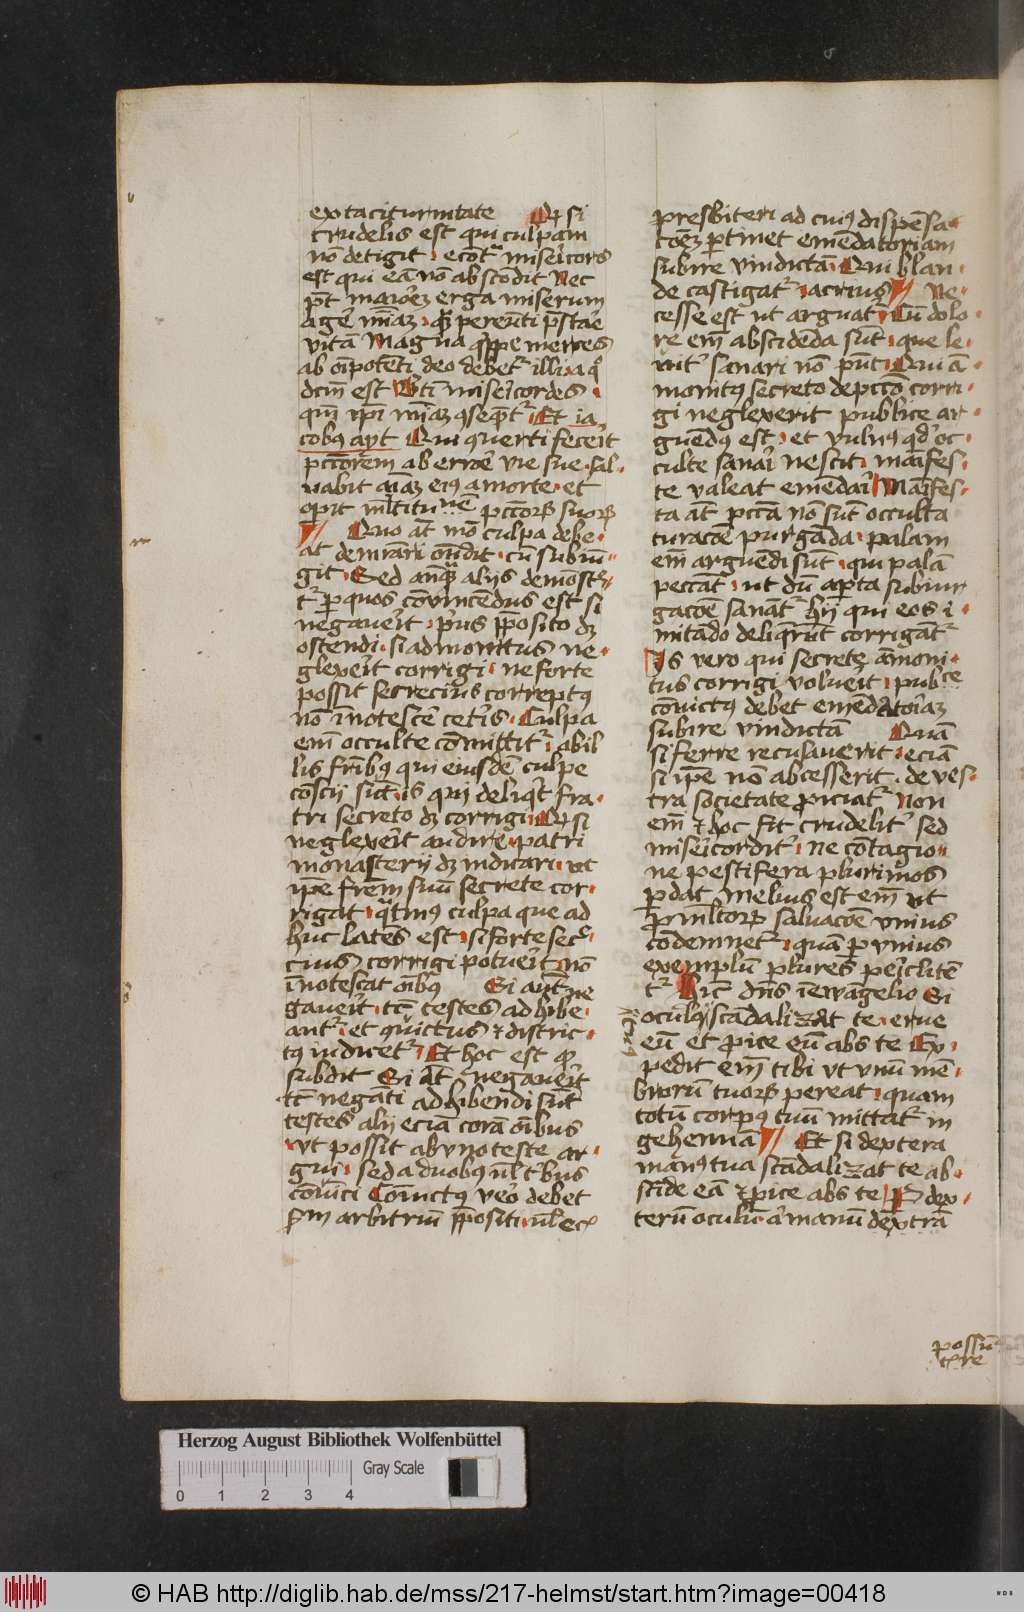 ex taciturnitate Qr si
crudelis est qui culpam
nō detigit · ecōtᵃ misericors
est qui eā nō abscodit Nec
pt̄ maiorē erga miserum
agere mīaꝫ · qᵃ perenti p̄stare
vitā Magna qippe merces
ab oīpotēti deo debet᷑ illi · a qͦ
dcm̄ est Bt̄i misericordes
qm̄ ipi mīaꝫ ꝯseqt᷑ · Et ia
cobꝰ ayt Qui querti fecerit
pctōrem ab errore vie sue · sal
vabit aīaꝫ eiꝰ a morte · et
opīt ml̄titunē pctōrꝝ suorꝝ
Quo āt mō culpa debe
at denūari oñdit · cū subiū
git · Sed anqᵃ alijs demostr
t᷑ ꝑ quos cōvincēdus est si
negaverit · pͥus ꝓposito dꝫ
ostendi · si admonitus ne
glexerit corrigi · ne forte
possit secrecius correptꝰ
nō īnotescere ceteris · Culpa
em̄ occulte cōmittit᷑ · ab il
lis fr̄ibꝰ qui eiusdē culpe
cōscij sūt · is qui deliqͥt fra
tri secreto dꝫ corrigi · Qr si
neglexerit audire · patri
monasterij dꝫ indicari · ut
ip̄e frēm suū secrete cor
rigat · qᵃtinꝰ culpa que ad
huc latēs est · si forte secre
cius corrigi potuerit nō
īnotescat oībꝰ Si aut̄ ne
gaverit · tc̄ testes adhibe
ant᷑ · et ꝯvictus ⁊ distric
tꝰ iudicet᷑ Et hoc est qͦ
subdit Si āt negaverit
tc̄ negāti adhibendi sūt
testes alij eciā corā oībus
ut possit ab uno teste ar
gui · sed a duobꝰ ul̄ tͥbus
cōvīci Cōvictꝰ vero debet
ẜm arbitriū ꝓpositi · ul̄ eciā
presbiteri ad cuiꝰ dispēsa
cōeꝫ ꝑtinet emēdatoriam
subire vindictā · Qui blan
de castigat᷑ · acrius Ne
cesse est ut arguat᷑ Cū dolo
re em̄ abscidēda sūt · que le
nit᷑ sanari nō pn̄t · Qui ā
monitꝰ secreto de pctō corri
gi neglexerit publice ar
guēdꝰ est · et vulnꝰ qd̓ oc
culte sanari nescit · māifes
te valeat emēdari Māifes
ta āt pctā nō sūt occulta
turacōe purgāda · palam
em̄ arguēdi sūt · qui palā
peccāt · ut dū aꝑta subiur
gacōe sanāt᷑ hij qui eos i
mitādo deliqr̄ūt corrigāt᷑
Is vero qui secrete āmoni
tus corrigi voluerit · pubce
cōvictꝰ debet emēdatoriaꝫ
subire vindictā Quā
si ferre recusaverit · eciā
si ip̄e nō abcesserit · de ves
tra societate ꝓiciat᷑ Non
em̄ ⁊ hoc fit crudelit᷑ sed
misericordit᷑ · ne cōtagio
ne pestifera plurimos
ꝑdat Melius est em̄ ut
ꝓ ml̄torꝝ salvacōe unius
cōdemnet᷑ · quā ꝑ unius
exemplū plures periclitē
t᷑ Hīc dn̄s ī ewāgelio Si
oculꝰ scādalizat te · erue
eū et ꝓice eū abs te Ex
pedit em̄ tibi ut unū mē
brorū tuorꝝ pereat · quam
totū corpꝰ tuū mittat᷑ in
gehennā Et si dextera
manꝰ tua scādalizat te ab
scide eā ⁊ ꝓice abs te Ꝑ dex
terū oculū · ā manū dextrā
possūt
Herzog August Bibliothek Wolfenbüttel
Gray Scale
0 1 2 3 4
© HAB http://diglib.hab.de/mss/217-helmst/start.htm?image=00418